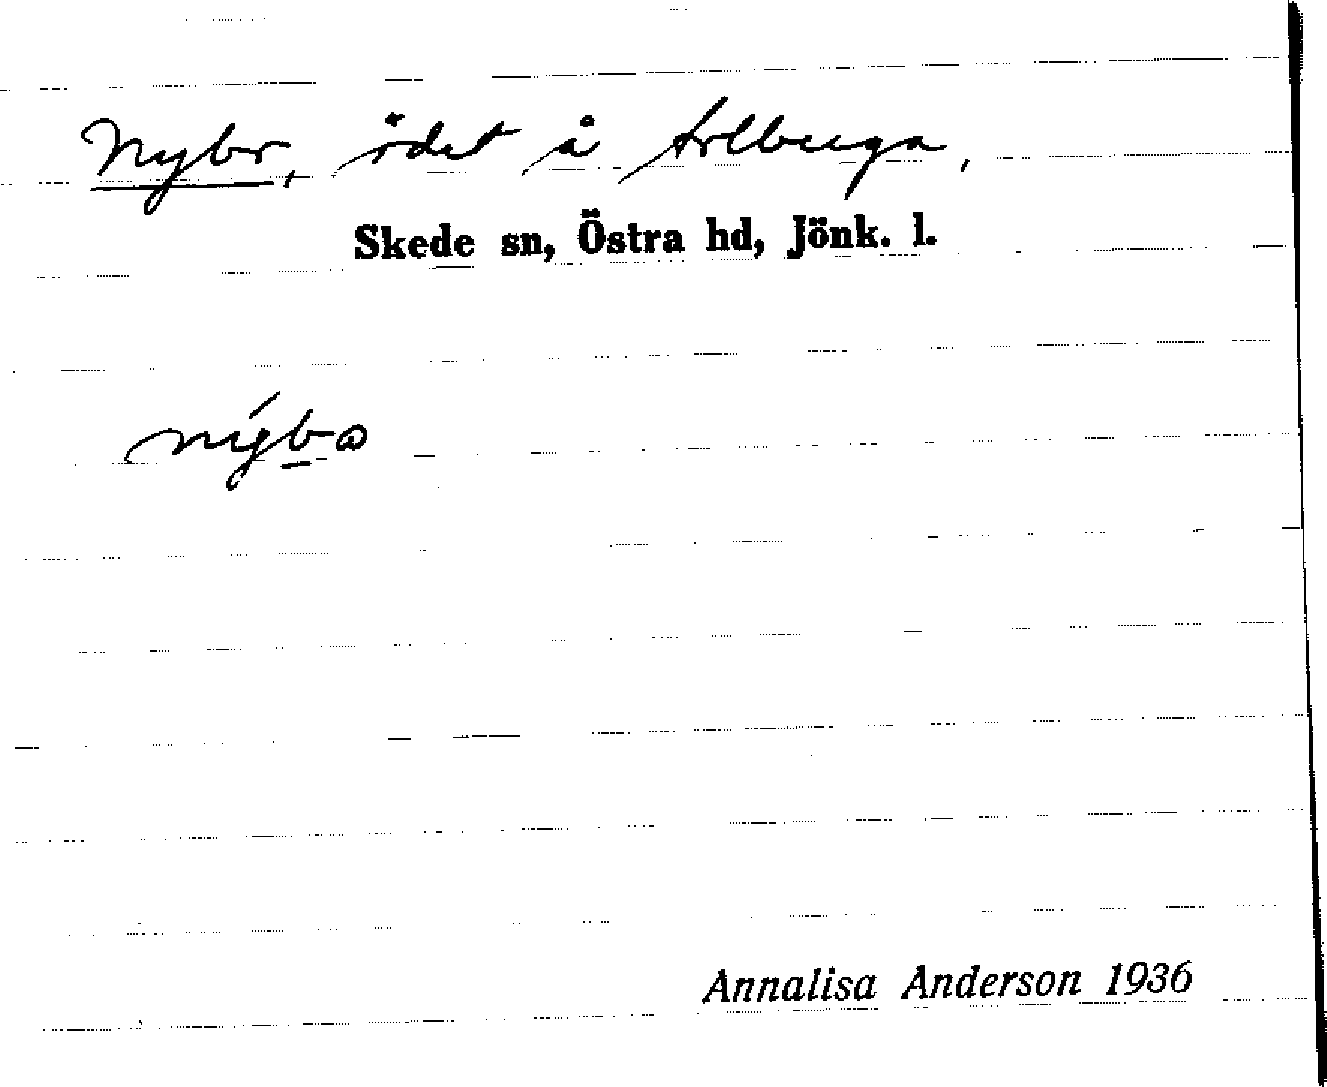 Nybo, ödet å Solberga,
Skede sn, Östra hd, Jönk. l.
nýbɷ
Annalisa Anderson 1936